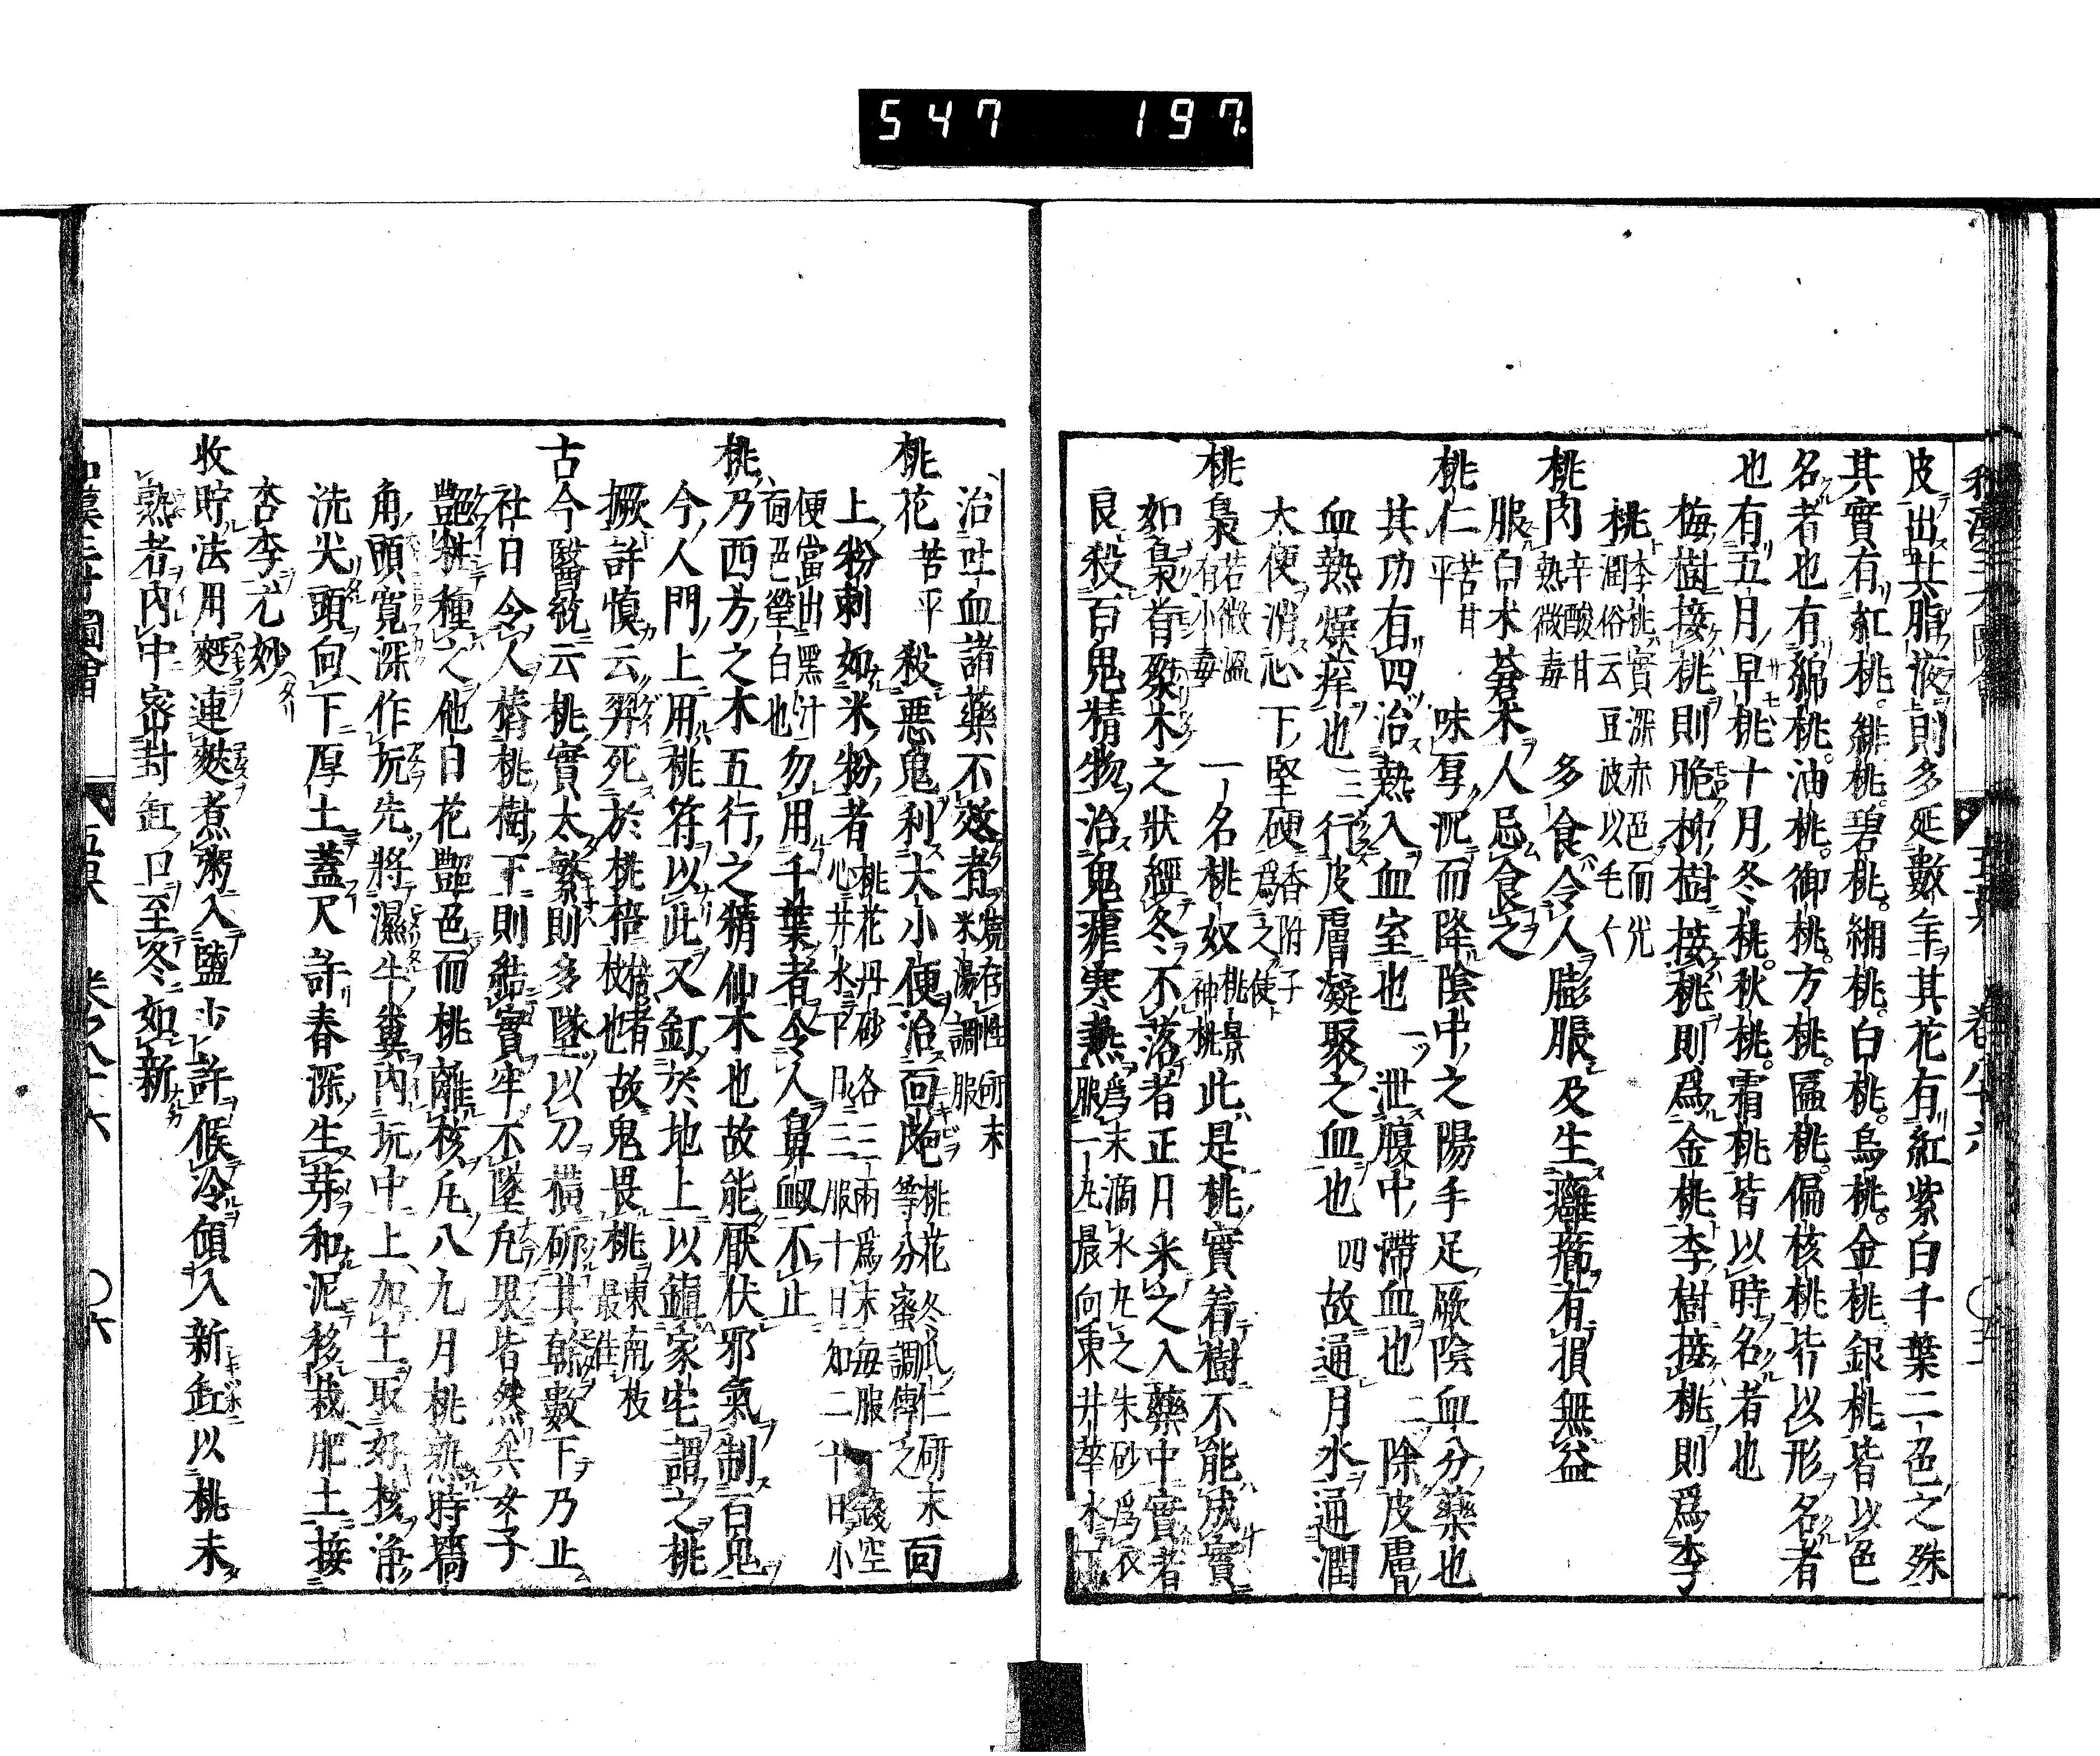 547 197.
和漢三才圖會 五菓 卷八十六
皮出其脂液則多延數年其花有紅紫白千葉二色之殊
其實有紅桃。緋桃。碧桃。緗桃。白桃。烏桃。金桃。銀桃皆以色
名者也有綿桃。油桃。御桃。方桃。匾桃。偏核桃皆以形名者
也有五月早桃十月冬桃。秋桃。霜桃皆以時名者也
梅樹接桃則脆柳樹接桃則爲金桃李樹接桃則爲李
桃李桃實深赤色而光
潤俗云豆波以毛々
桃肉辛酸甘
熱微毒 多食令人膨脹及生癰癤有損無益
服白朮蒼朮人忌食之
桃仁苦甘
平 味厚沉而降陰中之陽手足厥陰血分藥也
其功有四治熱入血室也一 泄腹中滯血也二 除皮膚
血熱燥痒也三 行皮膚凝聚之血也四 故通月水通潤
大便消心下堅硬香附子
爲之使
桃梟苦微溫
有小毒 一名桃奴桃景
神桃 此是桃實着樹不能成實
如梟首桀木之狀經冬不落者正月采之入藥中實者
良殺百鬼精物治鬼瘧寒熱爲末滴水丸之朱砂爲衣
服一丸晨向東井華水
治吐血諸藥不效者燒存性研末
米湯調服
桃花苦平 殺惡鬼利大小便治面皰桃花冬瓜仁研末
等分蜜調傅之 面
上粉刺如米粉者桃花丹砂各三兩爲末每服一錢空
心井水下日三服十日加二十日小
便當出黑汁
面色瑩白也 勿用千葉者令人鼻衄不止
桃乃西方之木五行之精仙木也故能厭伏邪氣制百鬼
今人門上用桃符以此又釘於地上以鎮家宅謂之桃
橛許愼云羿死於桃棓棓者
杖也故鬼畏桃東南枝
最佳
古今醫統云桃實太繁則多墜以刀橫斫其幹數下乃止
社日令人樁桃樹下則結實牢不墜凡果皆然矣女子
艷粧種之他日花艷色而桃離核凡八九月桃熟時墻
角頭寬深作坑先將濕牛糞內坑中上加土取好核淨
洗尖頭向下厚土蓋尺許春深生芽和泥移栽肥土接
杏李尤妙
收貯法用麪連麩煮粥入鹽少許候冷傾入新缸以桃未
熟者內中密封缸口至冬如新
和漢三才圖會 五菓 卷之八十六 〇六